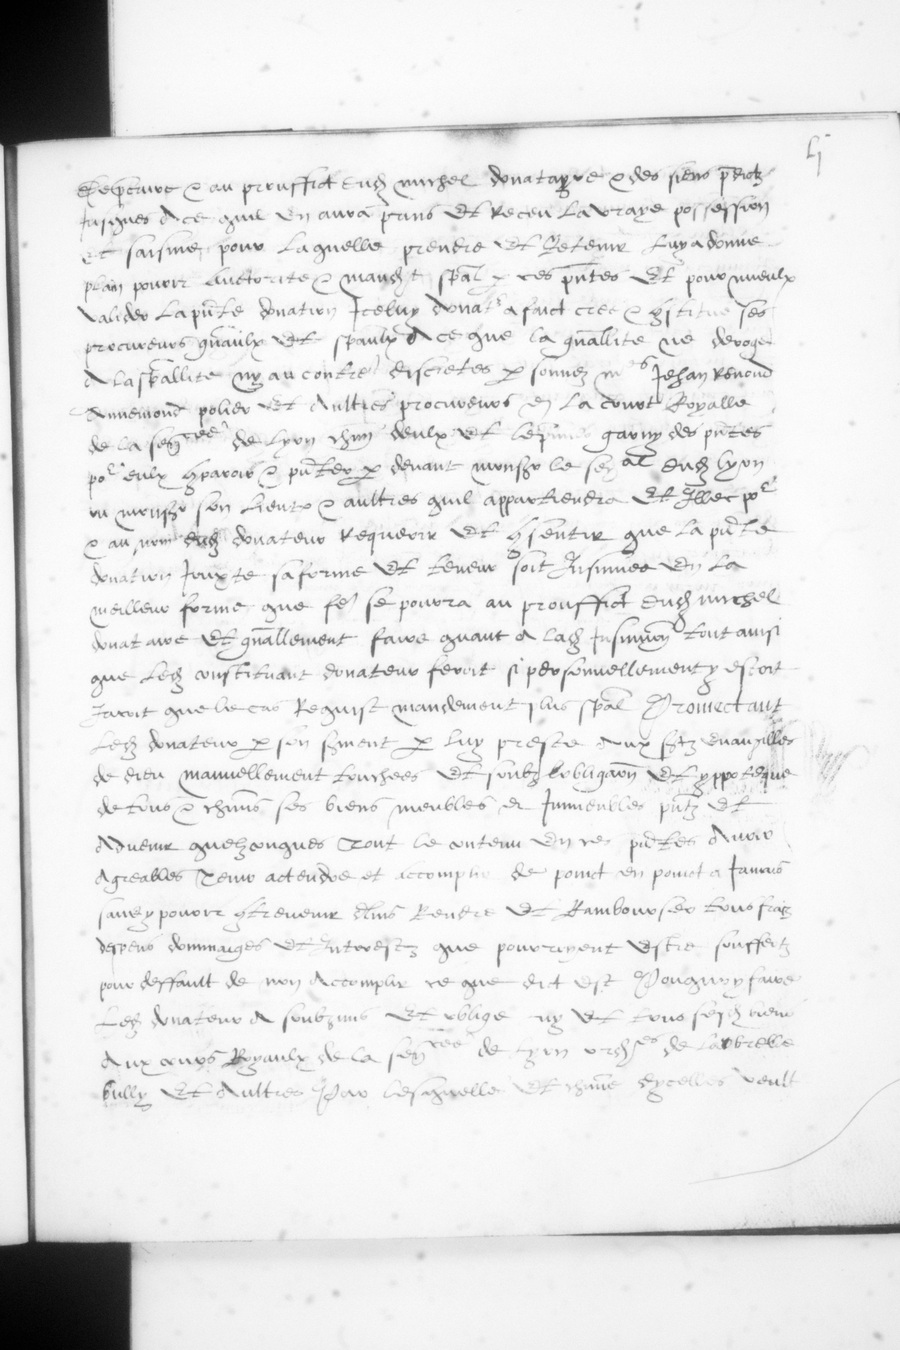 lj
& au prouffict dudʒ michel donatayre & des siens pᵭictz
jusques A ce quil en aura prins Et Receu La vraye possession
et saisine pour Laquelle prendre Et Retenir Luy a donne
plain pouvoir Auctorite & mandemt spāl p ces pñtes Et pour mieulx
valider La pñte donation Iceluy donatr a faict cree & constitue ses
procureurs gñaulx Et spāulx A ce que la gñallite ne deroge
A la spāllite ny au contrere discretes personnes mes Jehan Renoud
Annemond polier Et Aultres procureurs en La court Royalle
de la senee de Lyon chun deulx Et Le garny des pñtes
por eulx comparoir & pñter par devant monsr le senal dudʒ Lyon
ou monsr son Lient & aultres quil appartiendra Et Illec por
& au nom dudʒ donateur Requerir Et consentir que La pñte
donation Jouxte sa forme Et teneur soit Insinuee En La
meilleur forme que fere se pourra au prouffict dudʒ michel
donataire Et gñallement faire quant A Ladʒ Insinuaon tout ainsi
que Ledʒ constituant donateur feroit si personnellement y estoit
Jacoit que le cas Requist mandement plus spāl Promectant
Ledʒ donateur par son serment par Luy preste Aux stz Evangilles
de dieu manuellement touchees Et soubz Lobligaon Et yppoteque
de tous & chuns ses biens meubles et Immeubles pñtz Et
Advenir quelzconques Tout le contenu En ces pñtes Avoir
Agreables Tenir actendre et accomplir de poinct en poinct a Jamais
sans y pouvoir contrevenir Rendre Et Rambourser tous fraiz
despens dommaiges Et Interestz que pourroyent Estre souffertz
pour deffault de non Accomplir ce que dict est Pour quoy faire
Ledʒ donateur A soubzmis Et oblige Et tous sesdʒ biens
Aux cours Royaulx de la senee de Lyon de Larbrelle
bully Et Aultres Par Lesquelles Et chune dycelles veult